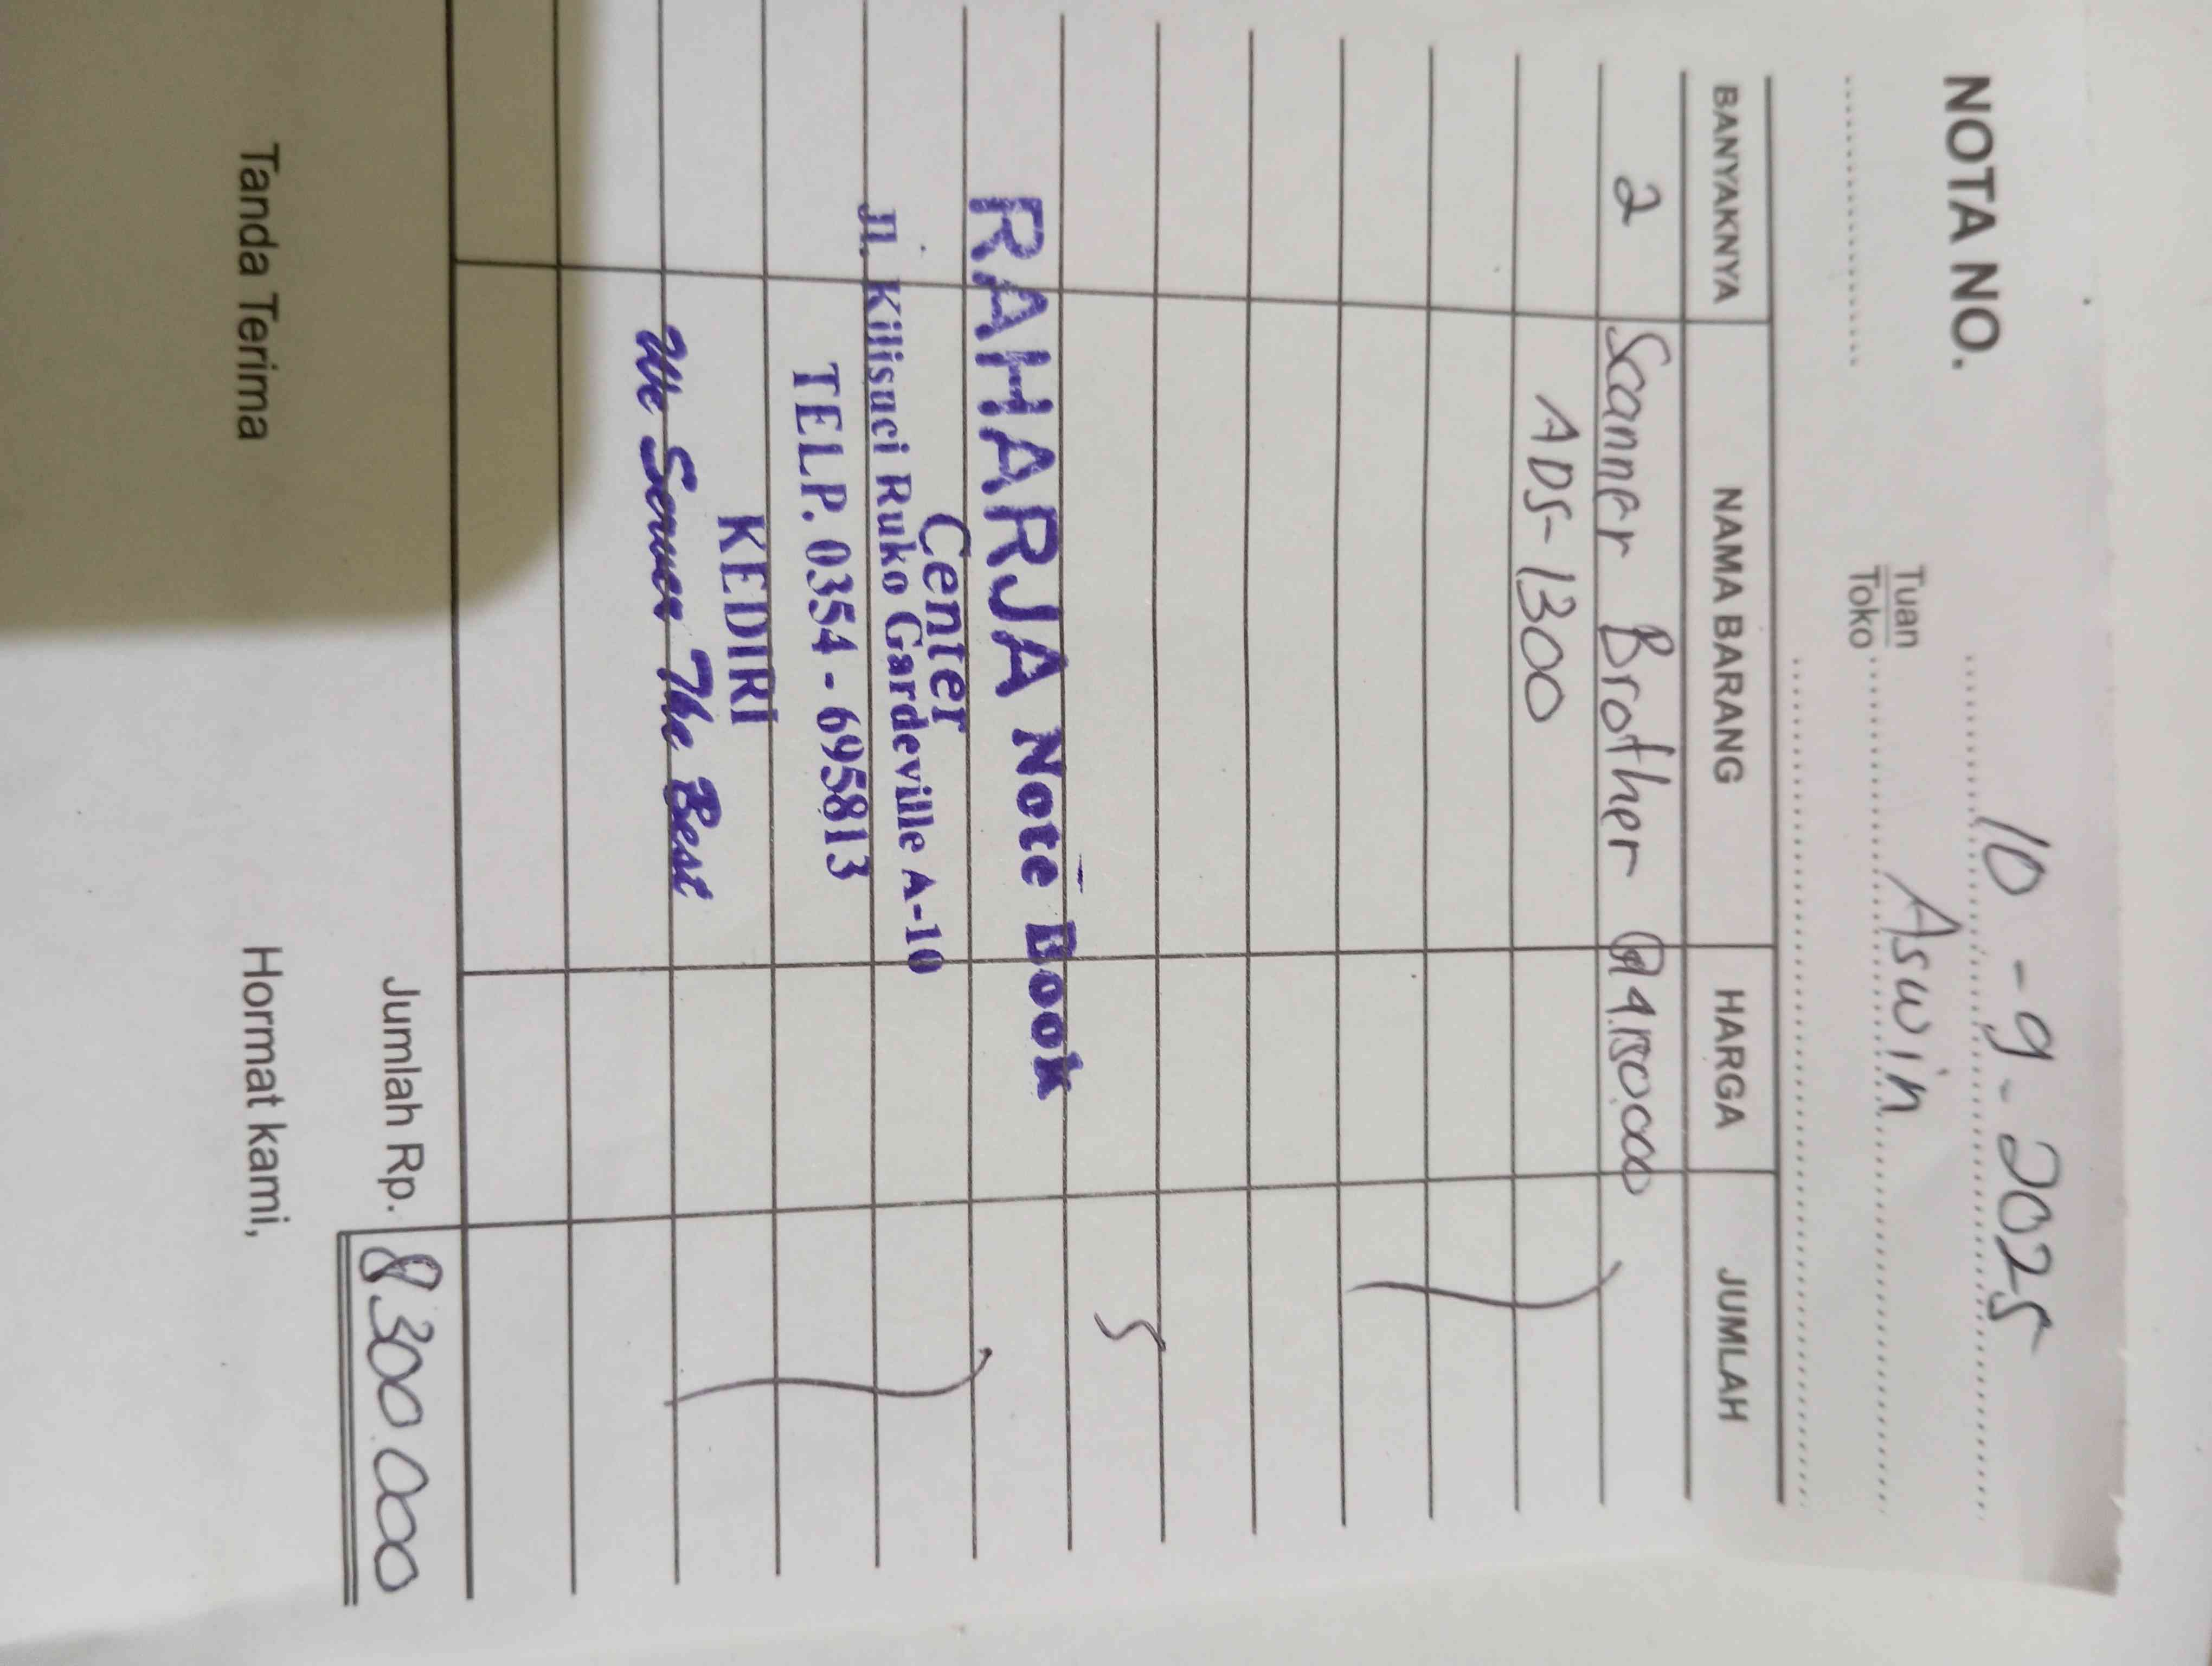 10 - 9 - 2025
NOTA NO.
Tuan
Toko
Aswin
BANYAKNYA NAMA BARANG HARGA JUMLAH
2 Scanner Brother @ 4.150.000
ADS-1300
RAHARJA Note Book
Center
Jl. Kilisuci Ruko Gardeville A-10
TELP. 0354 - 695813
KEDIRI
We Server The Best
Jumlah Rp. 8.300.000
Tanda Terima Hormat kami,